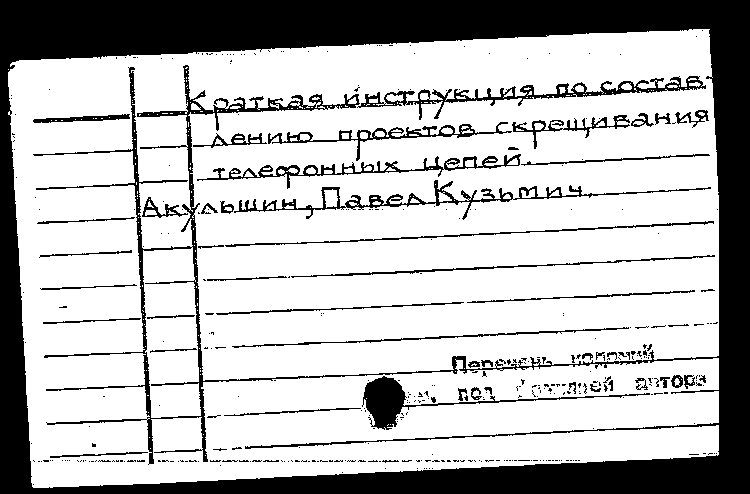 Краткая инструкция по состав-
лению проектов скрещивания
телефонных цепей.
Акульшин, Павел Кузьмич.
Перечень изданий
см. под фамилией автора